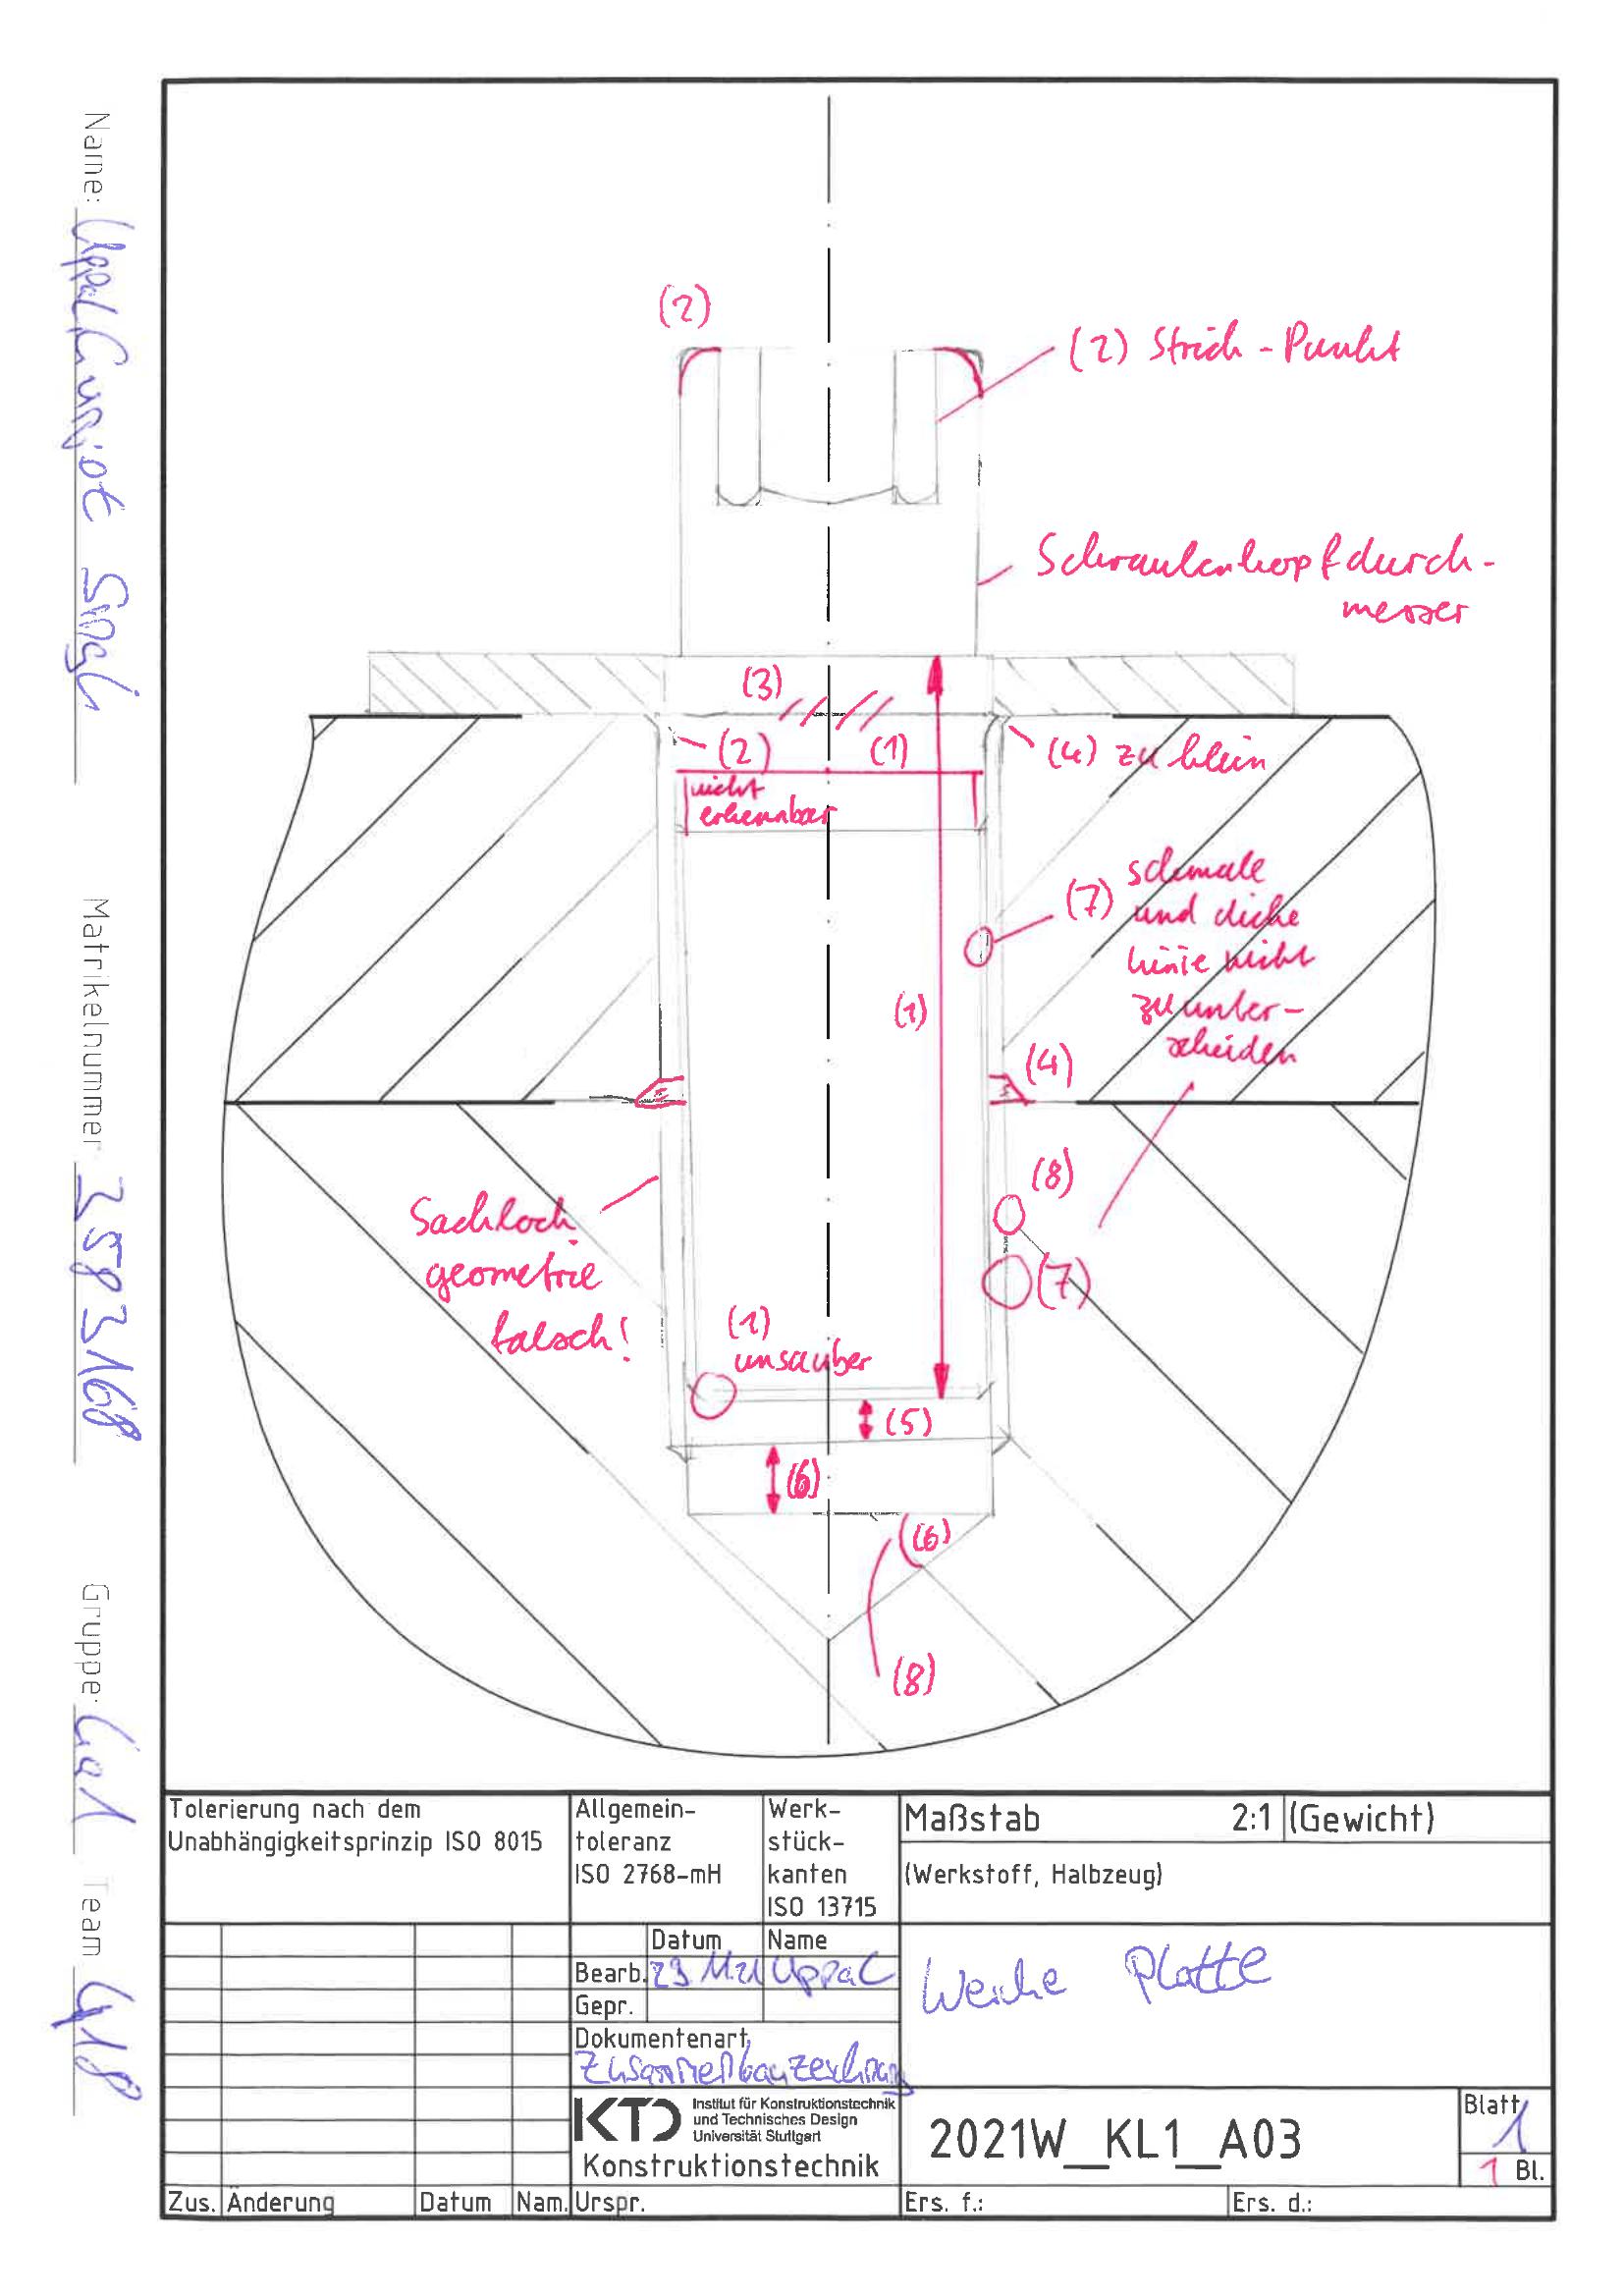 Name: Uppal, Gurjot Singh
Matrikelnummer 3583168
Gruppe: Team
(2)
(2) Strich-Punkt
Schraubenkopfdurch-
messer
(3)
(2)
(1)
(4) zu klein
nicht
erkennbar
(7) schmale
und dicke
linie nicht
zu unter-
scheiden
(1)
(4)
(8)
Sachloch
geometrie
falsch!
(7)
(1)
unsauber
(5)
(6)
(6)
(8)
Tolerierung nach dem
Unabhängigkeitsprinzip ISO 8015
Allgemein-
toleranz
ISO 2768-mH
Werk-
stück-
kanten
ISO 13715
Maßstab 2:1 (Gewicht)
(Werkstoff, Halbzeug)
Datum Name
Bearb. Uppal
Gepr.
Dokumentenart
Zusammenbauzeichnung
Weiche Platte
KTD Institut für Konstruktionstechnik
und Technisches Design
Universität Stuttgart
Konstruktionstechnik
2021W_KL1_A03
Blatt
1
1 Bl.
Zus. Änderung Datum Nam. Urspr. Ers. f.: Ers. d.: